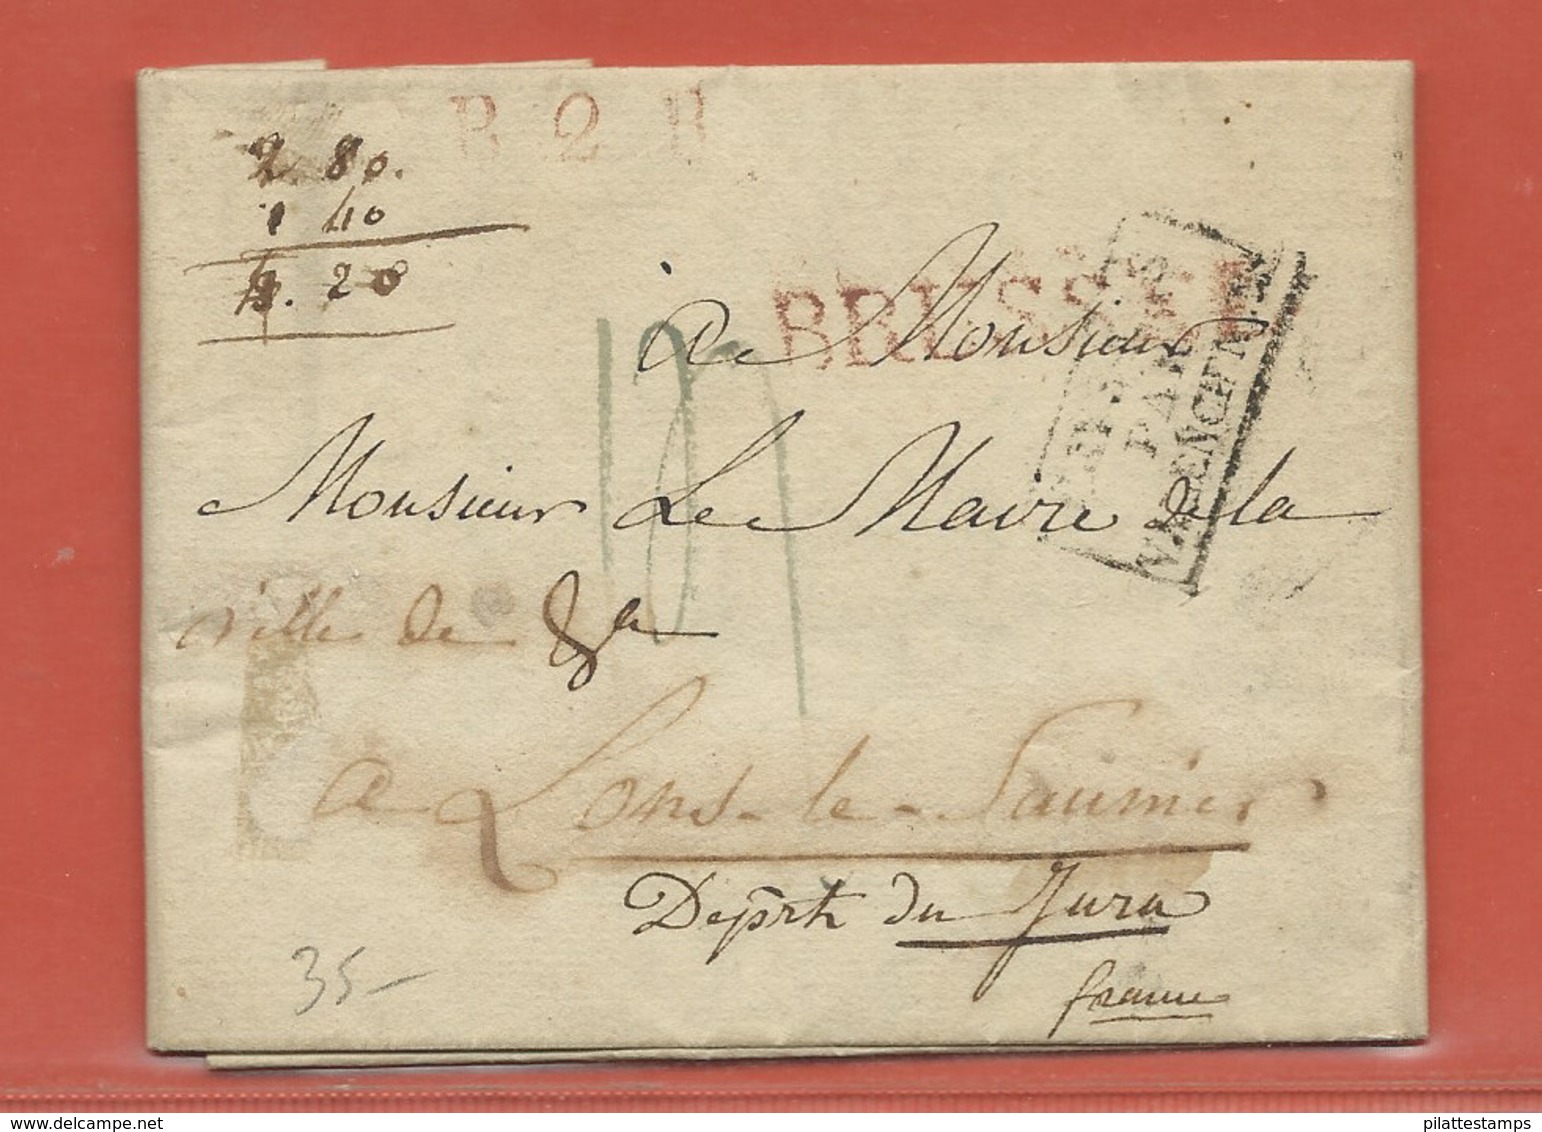 B 2 R
2. 80.
1 40
4. 20
BRUSSEL
PAYS-BAS
PAR
VALENCIENNES
à Monsieur
Monsieur Le Maire de la
ville de
à Lons-le-Saunier
Deprt du Jura
france
35-
pilattestamps.com